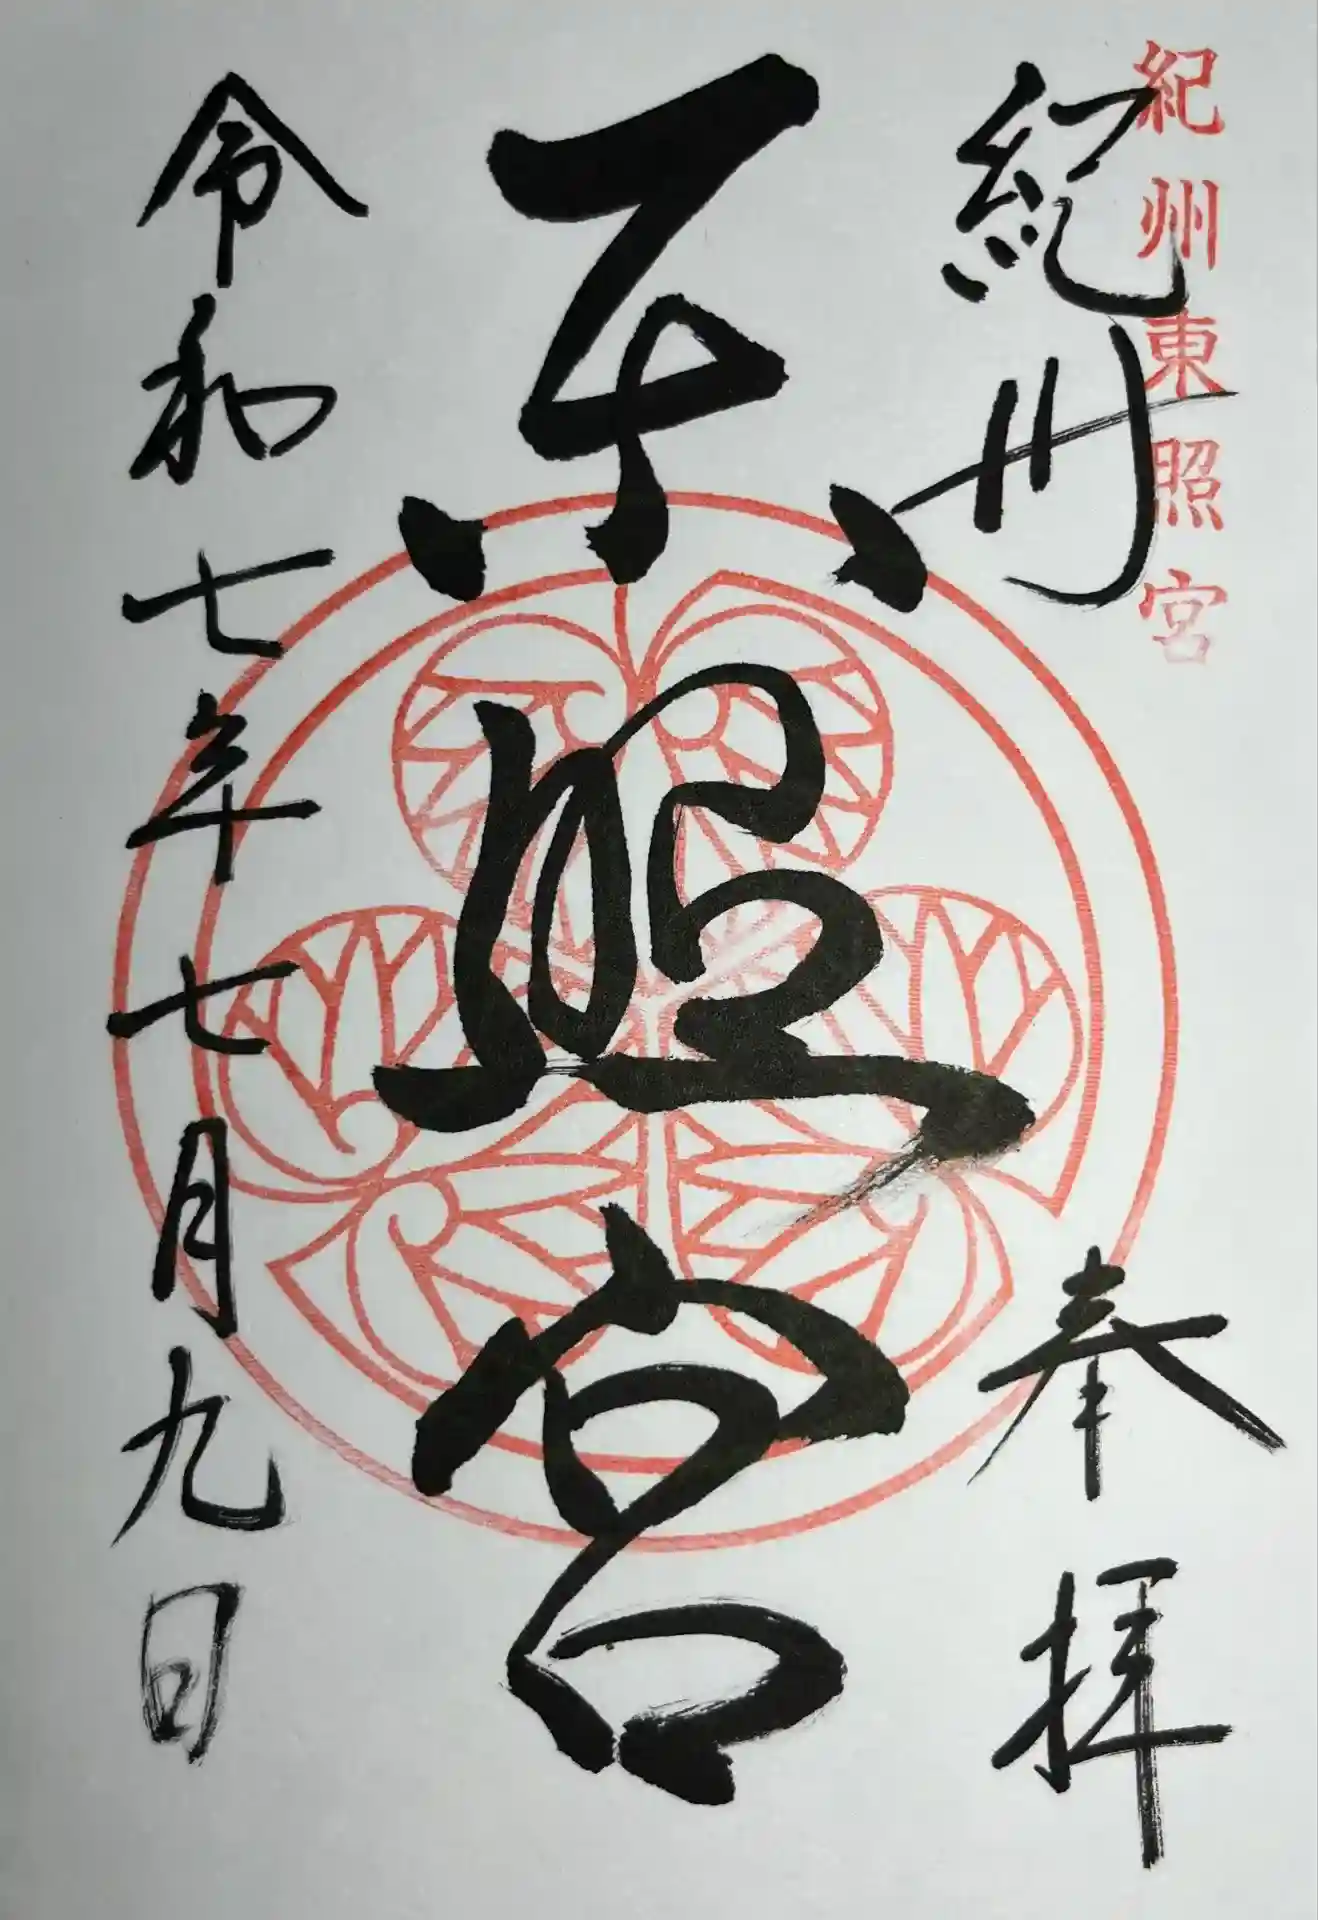 紀州東照宮
紀州
奉拝
東照宮
令和七年七月九日